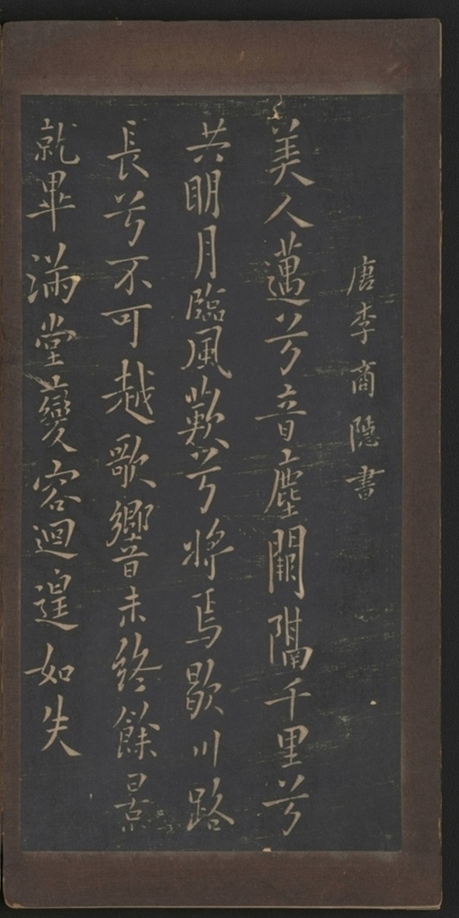 唐李商隱書
美人邁兮音塵闕隔千里兮
共明月臨風歎兮將焉歇川路
長兮不可越歌響未終餘景
就畢滿堂變容迴遑如失